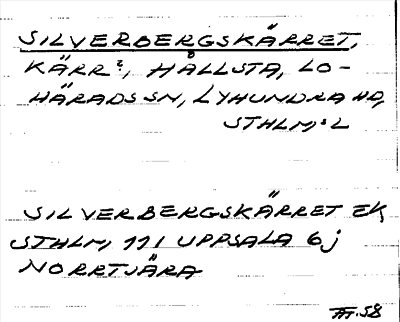 SILVERBERGSKÄRRET,
KÄRR?, HÅLLSTA, LO-
HÄRADS SN, LYHUNDRA HD,
STHLM:S L
SILVERBERGSKÄRRET EK
STHLM, 111 UPPSALA 6j
NORRTJÄRA
.58